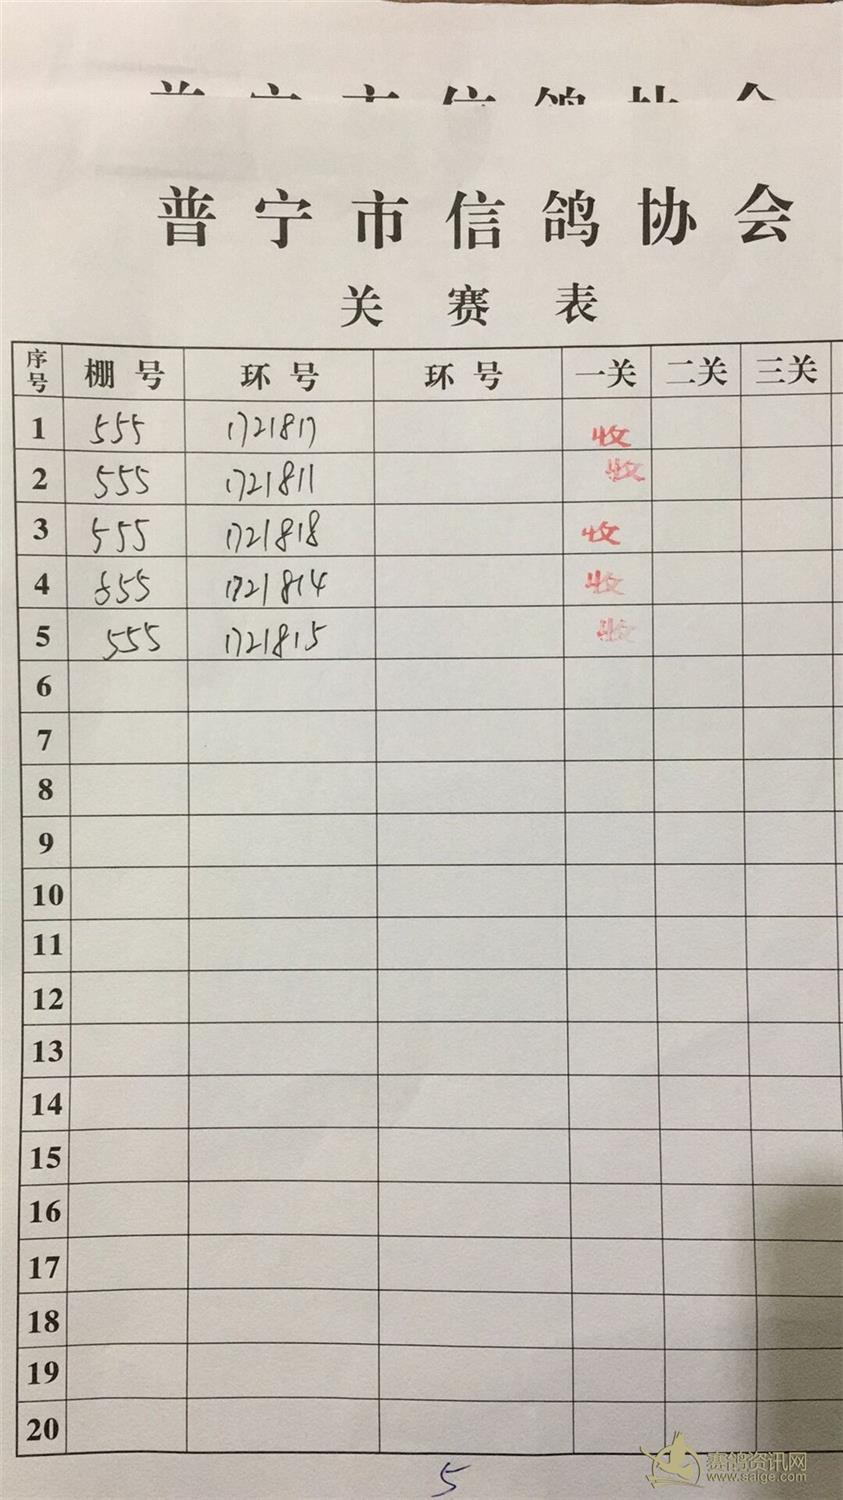 普宁市信鸽协会
普宁市信鸽协会
关赛表
序号 棚号 环号 环号 一关 二关 三关
1 555 1721817 收
2 555 1721811 收
3 555 1721818 收
4 555 1721814 收
5 555 1721815 收
6
7
8
9
10
11
12
13
14
15
16
17
18
19
20
5
赛鸽资讯网
www.saige.com